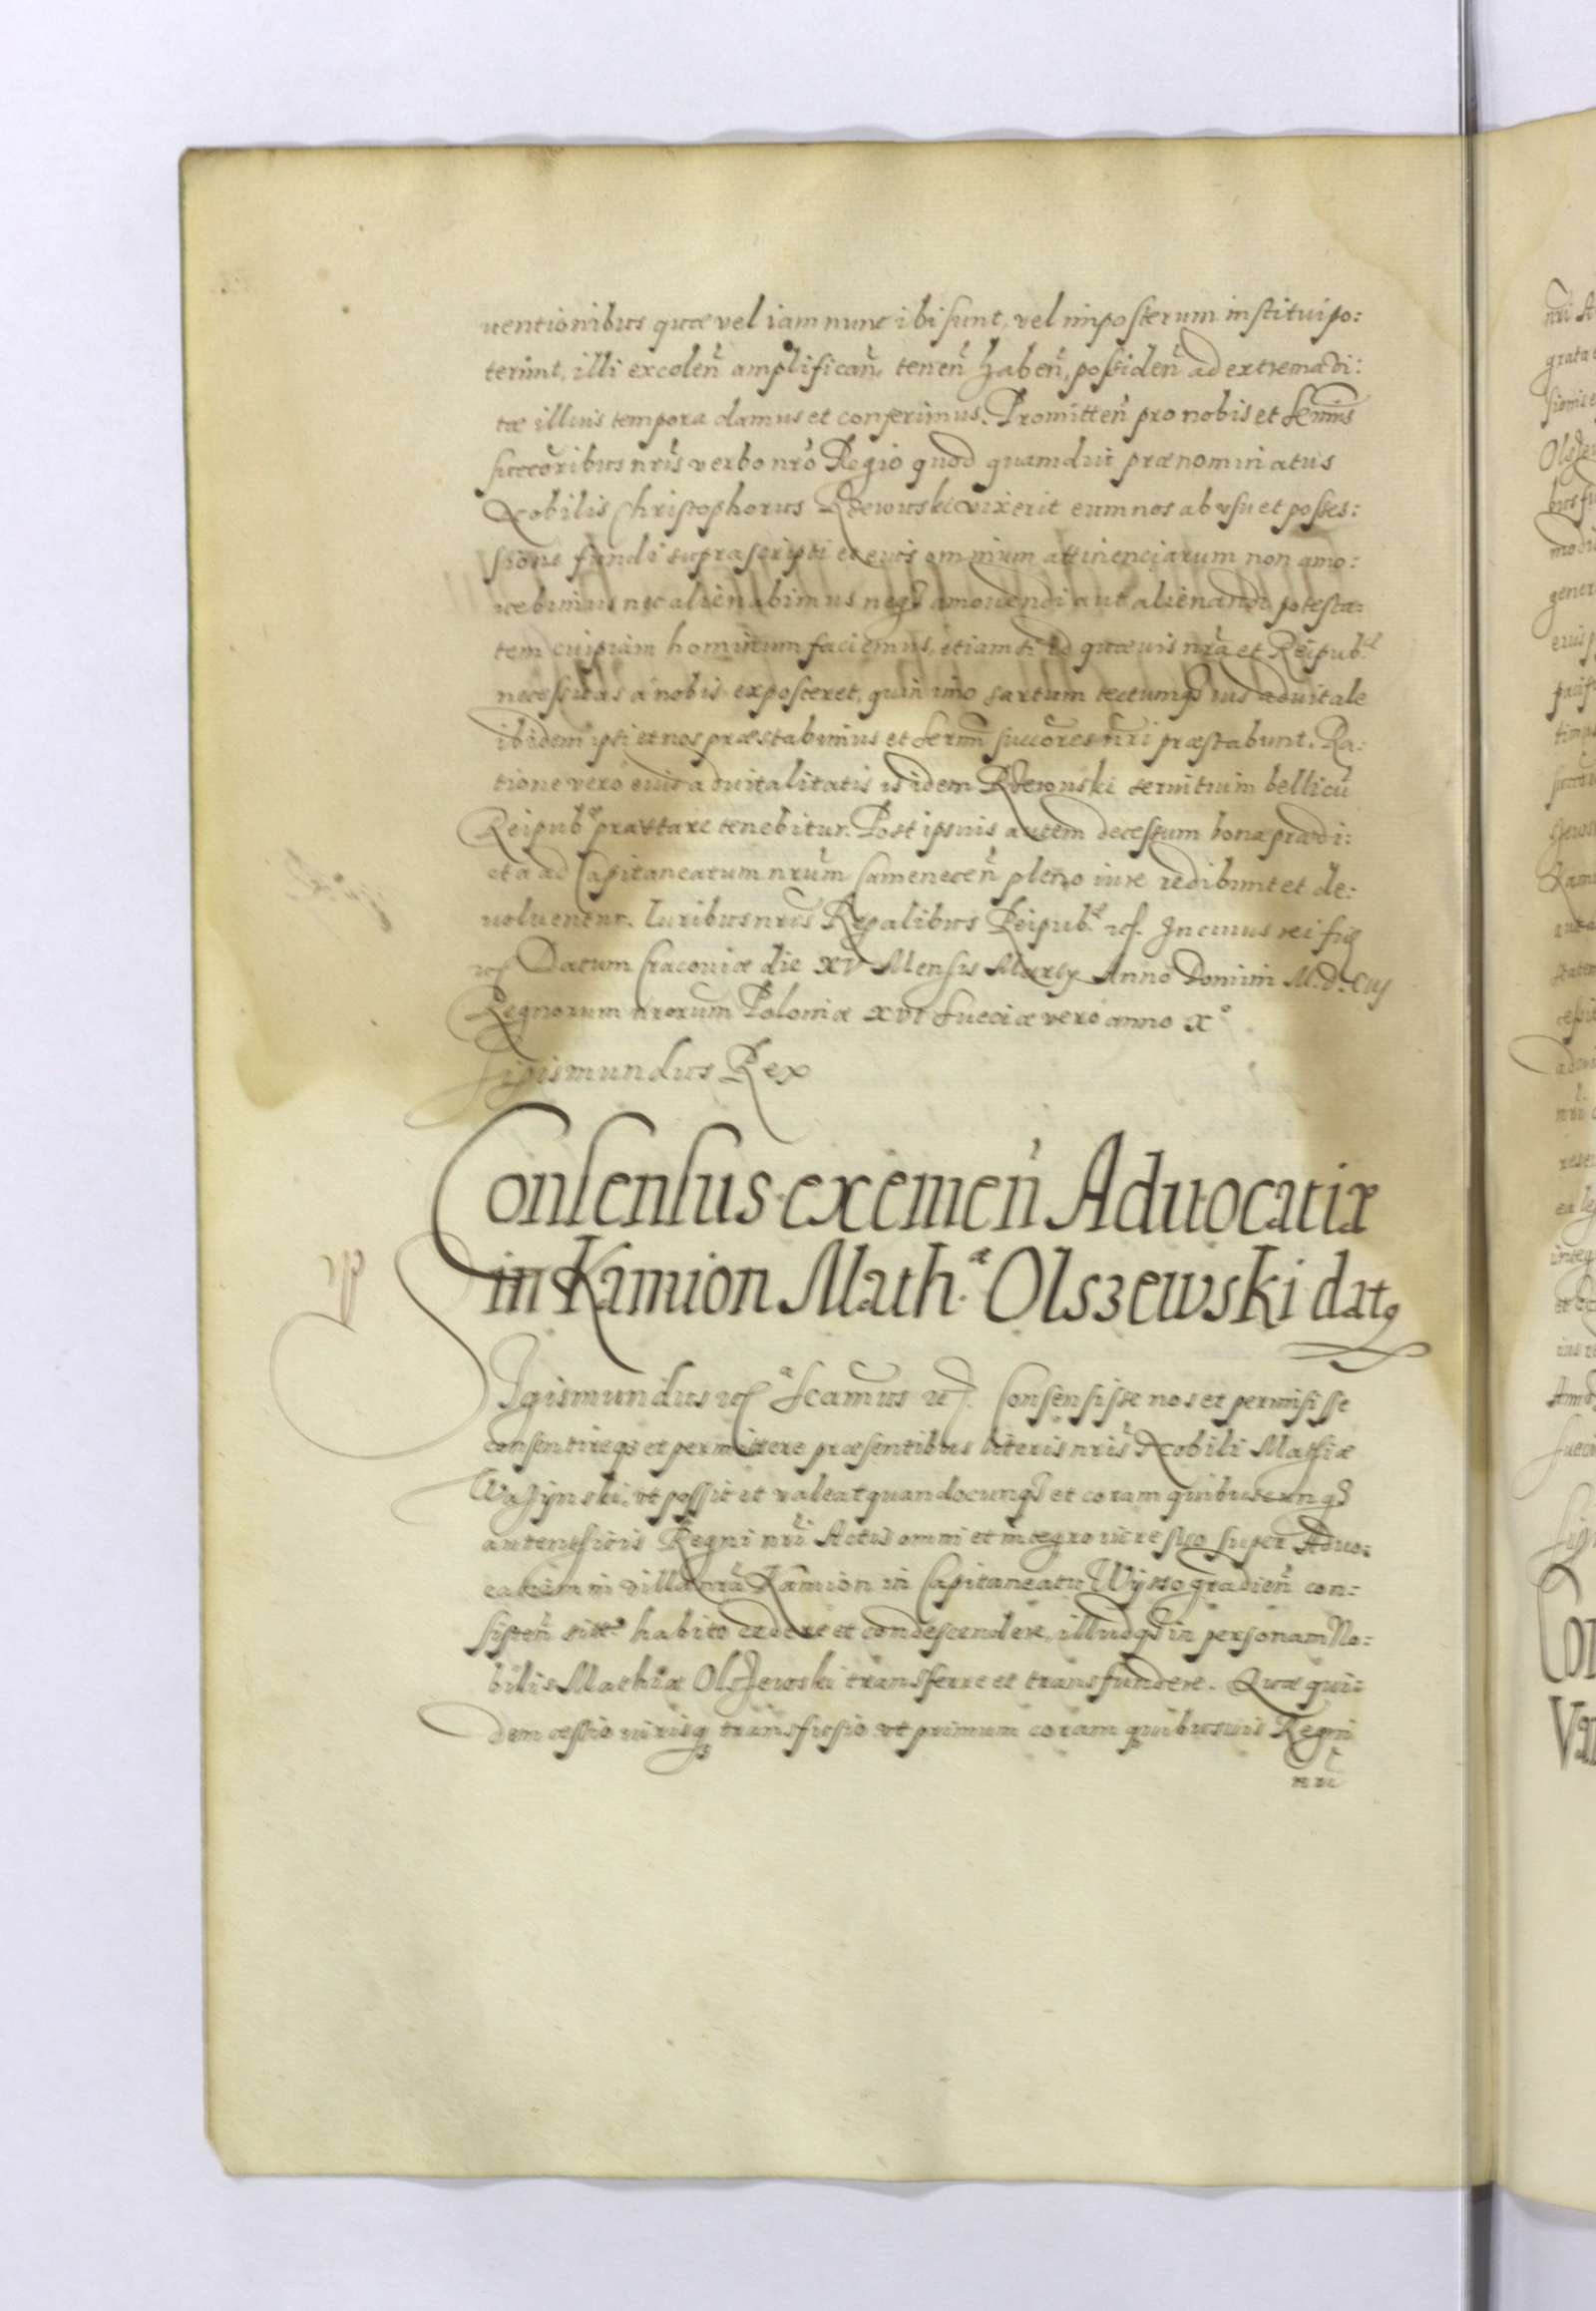 uentionibus quæ vel iam nunc ibi sunt, vel imposterum institui po:
terunt, illi excoleñ amplificañ, teneñ habeñ, possideñ ad extrema vi:
tæ illius tempora damus et conferimus. Promitteñ pro nobis et Sermis
succoribus nris verbo nro Regio quod quamdiu prænominatus
Nobilis Christophorus Rdewuski vixerit eum nos ab vsu et posses:
sione fundi suprascripti et eius omnium attinenciarum non amo:
uebimus nec alienabimus neq3 amouendi aut alienandi potesta:
tem cuipiam hominum faciemus, etiam si id quæuis nra et Reipub.
necessitas a nobis exposceret, quin imo sartum tectumq3 ius aduitale
ibidem ipsi et nos præstabimus et Sermi succores nri præstabunt. Ra:
tione vero eius aduitalitatis is idem Rdewuski seruitium bellicu
Reipub præstare tenebitur. Post ipsius autem decessum bona prædi:
cta ad Capitaneatum nrum Cameneceñ pleno iure redibunt et de:
uoluentur. Iuribus nris Regalibus Reipub. etc. In cuius rei fid
etc Datum Cracouiæ die XV Mensis Marty Anno Domini M.D.Ciij
Regnorum nrorum Poloniæ XVI Sueciæ vero anno X°
Sigismundus Rex
Consensus exemeñ Aduocatiæ
in Kamion Math.æ Olszewski dat9
Sigismundus etc Scamus etc. Consensisse nos et permisisse
consentireq3 et permittere præsentibus literis nris Nobili Mathiæ
Wazynski, vt possit et valeat quandocunq3 et coram quibuscunq3
autenticis Regni nri Actis omni et integro iure suo super Aduo:
catiam in villa nra Kamion in Capitaneatu Wyssogradieñ con:
sisteñ habito cedere et condescendere, illudq3 in personam No:
bilis Mathiæ Olszewski transferre et transfundere. Quæ qui:
dem cessio iurisq3 transfusio vt primum coram quibusuis Regni
nri